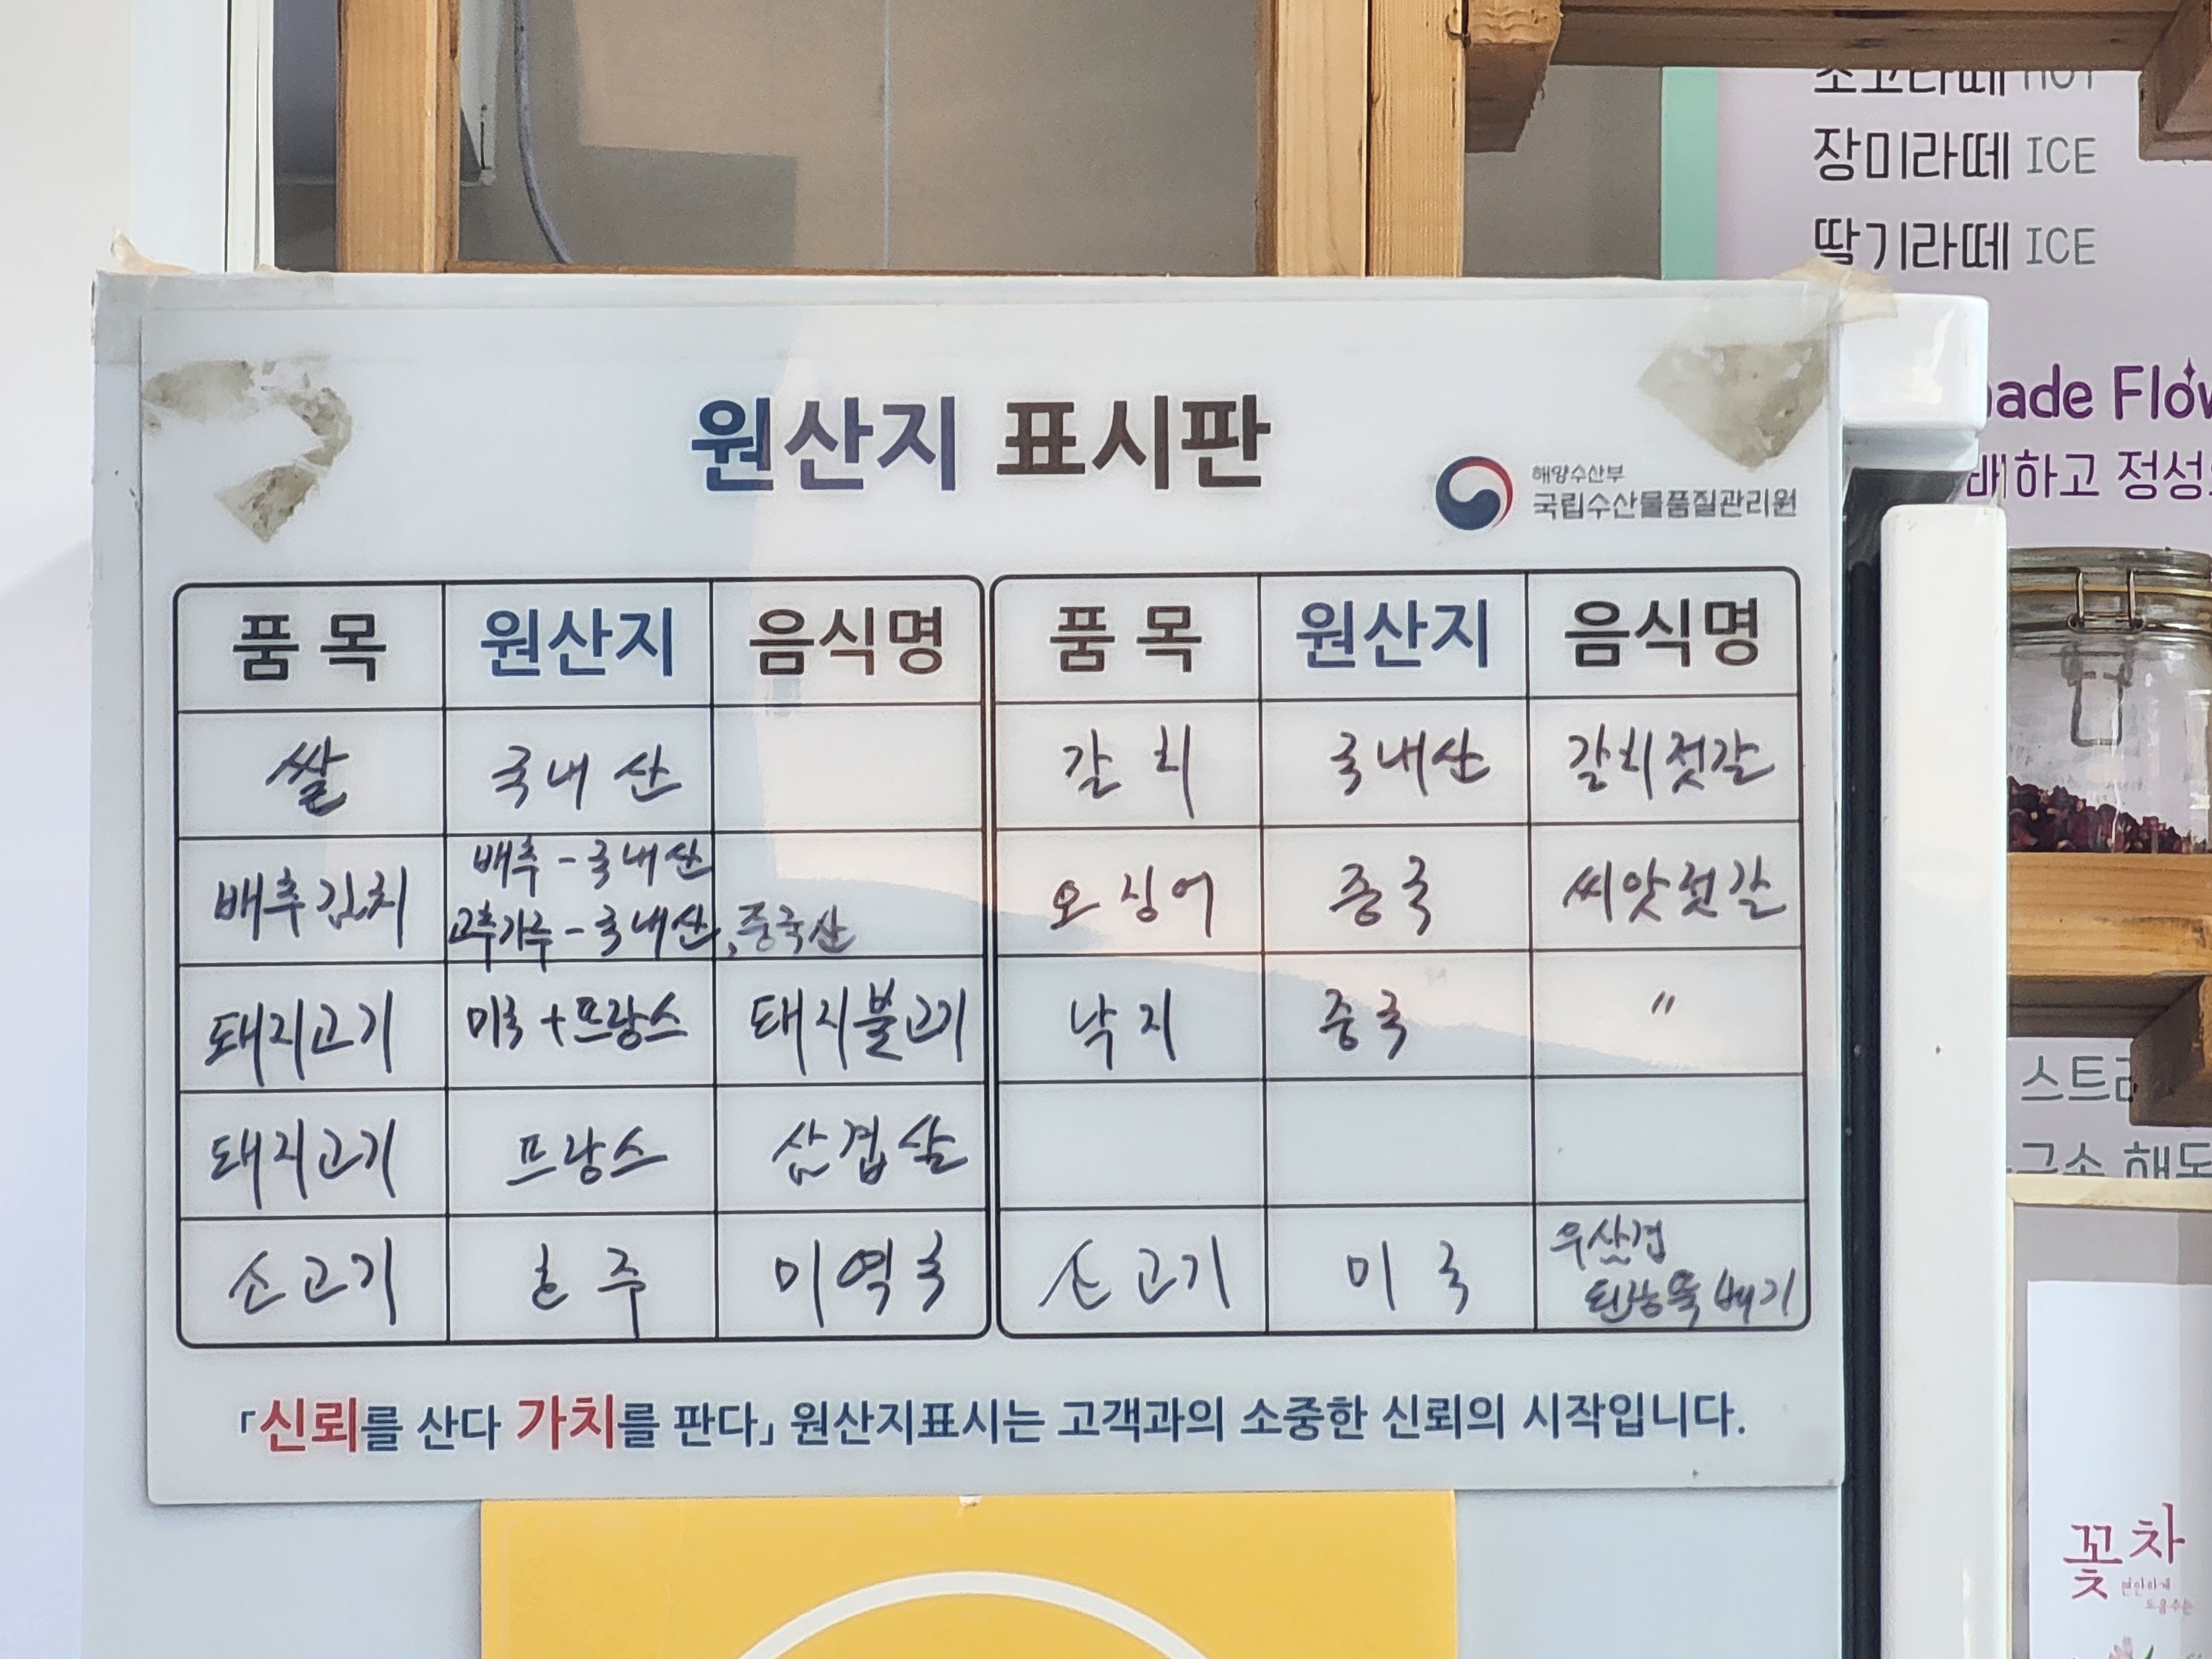 초코라떼 HOT
장미라떼 ICE
딸기라떼 ICE
ade Flow
배하고 정성
원산지 표시판
해양수산부
국립수산물품질관리원
품 목 원산지 음식명 품 목 원산지 음식명
쌀 국내산 갈치 국내산 갈치젓갈
배추김치 배추-국내산
고추가루-국내산, 중국산
오징어 중국 씨앗젓갈
돼지고기 미국+프랑스 돼지불고기 낙지 중국 〃
돼지고기 프랑스 삼겹살
소고기 호주 미역국 소고기 미국 우삼겹
된장뚝배기
「신뢰를 산다 가치를 판다」 원산지표시는 고객과의 소중한 신뢰의 시작입니다.
스트레
해독
꽃차